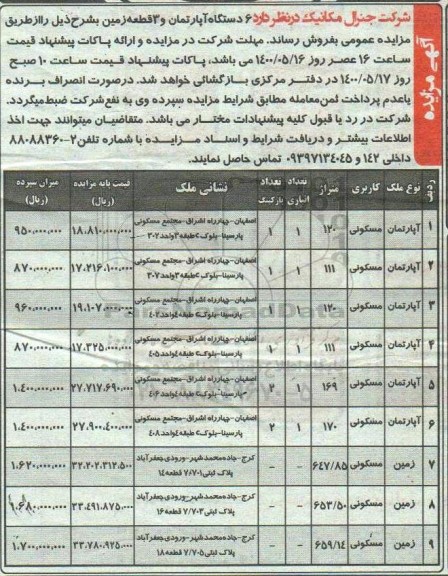 آگهی مزایده
شرکت جنرال مکانیک درنظر دارد ۶ دستگاه آپارتمان و ۳ قطعه زمین بشرح ذیل را از طریق
مزایده عمومی بفروش رساند. مهلت شرکت در مزایده و ارائه پاکات پیشنهاد قیمت
ساعت ۱۶ عصر روز ۱۴۰۰/۰۵/۱۶ می باشد، پاکات پیشنهاد قیمت ساعت ۱۰ صبح
روز ۱۴۰۰/۰۵/۱۷ در دفتر مرکزی بازگشائی خواهد شد. درصورت انصراف برنده
یا عدم پرداخت ثمن معامله مطابق شرایط مزایده سپرده وی به نفع شرکت ضبط میگردد.
شرکت در رد یا قبول کلیه پیشنهادات مختار می باشد. متقاضیان میتوانند جهت اخذ
اطلاعات بیشتر و دریافت شرایط و اسناد مزایده با شماره تلفن ۲-۸۸۰۸۸۳۶۰
داخلی ۱۴۲ و ۰۹۳۹۷۱۳۴۰۴۵ تماس حاصل نمایند.
ردیف نوع ملک کاربری متراژ تعداد انباری تعداد پارکینگ نشانی ملک قیمت پایه مزایده (ریال) میزان سپرده (ریال)
۱ آپارتمان مسکونی ۱۲۰ ۱ ۱ اصفهان-چهارراه اشراق-مجتمع مسکونی پارسینا-بلوک c طبقه ۳ واحد ۳۰۲ ۱۸.۸۱۰.۰۰۰.۰۰۰ ۹۵۰.۰۰۰.۰۰۰
۲ آپارتمان مسکونی ۱۱۱ ۱ ۱ اصفهان-چهارراه اشراق-مجتمع مسکونی پارسینا-بلوک c طبقه ۳ واحد ۳۰۷ ۱۷.۲۱۶.۱۰۰.۰۰۰ ۸۷۰.۰۰۰.۰۰۰
۳ آپارتمان مسکونی ۱۲۰ ۱ ۱ اصفهان-چهارراه اشراق-مجتمع مسکونی پارسینا-بلوک c طبقه ۴ واحد ۴۰۲ ۱۹.۱۰۷.۰۰۰.۰۰۰ ۹۶۰.۰۰۰.۰۰۰
۴ آپارتمان مسکونی ۱۱۱ ۱ ۱ اصفهان-چهارراه اشراق-مجتمع مسکونی پارسینا-بلوک c طبقه ۴ واحد ۴۰۵ ۱۷.۳۲۵.۰۰۰.۰۰۰ ۸۷۰.۰۰۰.۰۰۰
۵ آپارتمان مسکونی ۱۶۹ ۱ ۲ اصفهان-چهارراه اشراق-مجتمع مسکونی پارسینا-بلوک c طبقه ۴ واحد ۴۰۶ ۲۷.۷۱۷.۶۹۰.۰۰۰ ۱.۴۰۰.۰۰۰.۰۰۰
۶ آپارتمان مسکونی ۱۷۰ ۱ ۲ اصفهان-چهارراه اشراق-مجتمع مسکونی پارسینا-بلوک c طبقه ۴ واحد ۴۰۸ ۲۷.۹۰۰.۴۰۰.۰۰۰ ۱.۴۰۰.۰۰۰.۰۰۰
۷ زمین مسکونی ۶۴۷/۸۵ - - کرج-جاده محمدشهر-ورودی جعفرآباد پلاک ثبتی ۷/۷۰۱ قطعه ۱۴ ۳۲.۲۰۲.۳۱۲.۵۰۰ ۱.۶۲۰.۰۰۰.۰۰۰
۸ زمین مسکونی ۶۵۳/۵۰ - - کرج-جاده محمدشهر-ورودی جعفرآباد پلاک ثبتی ۷/۷۰۳ قطعه ۱۶ ۳۳.۴۹۱.۸۷۵.۰۰۰ ۱.۶۸۰.۰۰۰.۰۰۰
۹ زمین مسکونی ۶۵۹/۱۴ - - کرج-جاده محمدشهر-ورودی جعفرآباد پلاک ثبتی ۷/۷۰۵ قطعه ۱۸ ۳۳.۷۸۰.۹۲۵.۰۰۰ ۱.۷۰۰.۰۰۰.۰۰۰